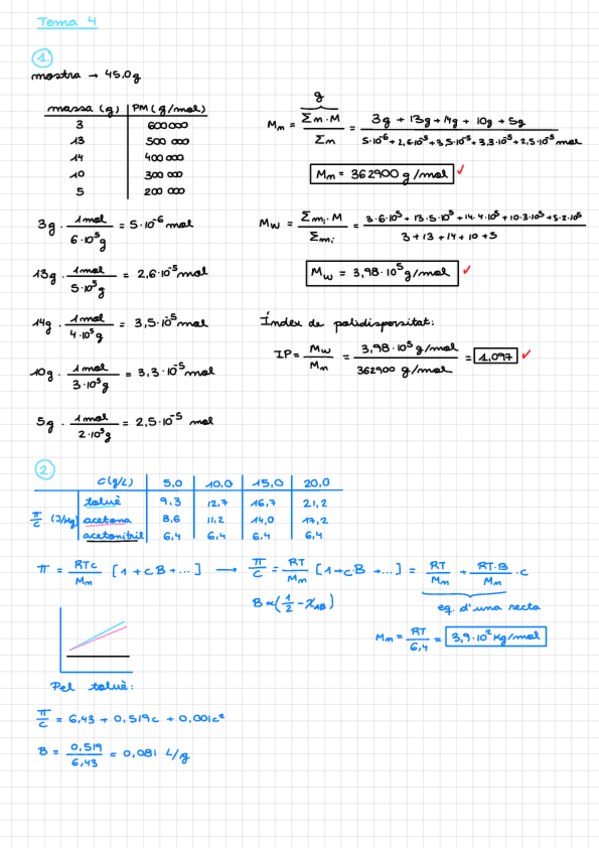 Tema 4
1.
mostra → 45,0g
massa (g) | PM (g/mol)
3 | 600 000
13 | 500 000
14 | 400 000
10 | 300 000
5 | 200 000
3g · 1mol / 6·10⁵g = 5·10⁻⁶ mol
13g · 1mol / 5·10⁵g = 2,6·10⁻⁵ mol
14g · 1mol / 4·10⁵g = 3,5·10⁻⁵ mol
10g · 1mol / 3·10⁵g = 3,3·10⁻⁵ mol
5g · 1mol / 2·10⁵g = 2,5·10⁻⁵ mol
g
Mn = Σm·M / Σm = 3g + 13g + 14g + 10g + 5g / 5·10⁻⁶ + 2,6·10⁻⁵ + 3,5·10⁻⁵ + 3,3·10⁻⁵ + 2,5·10⁻⁵ mol
Mn = 362900 g/mol ✓
Mw = Σmi·M / Σmi = 3·6·10⁵ + 13·5·10⁵ + 14·4·10⁵ + 10·3·10⁵ + 5·2·10⁵ / 3 + 13 + 14 + 10 + 5
Mw = 3,98·10⁵ g/mol ✓
Índex de polidispersitat:
IP = Mw / Mn = 3,98·10⁵ g/mol / 362900 g/mol = 1,097 ✓
2.
C (g/L) | 5,0 | 10,0 | 15,0 | 20,0
π/C (J/kg) | toluè | 9,3 | 12,7 | 16,7 | 21,2
acetona | 8,6 | 11,2 | 14,0 | 17,2
acetonitril | 6,4 | 6,4 | 6,4 | 6,4
π = RTc / Mn [1 + cB + ...] → π/C = RT / Mn [1 + cB + ...] = RT / Mn + RT·B / Mn · c
B ∝ (1/2 - χAB)
eq. d'una recta
Mn = RT / 6,4 = 3,9·10² kg/mol
Pel toluè:
π/C = 6,43 + 0,519c + 0,001c²
B = 0,519 / 6,43 = 0,081 L/g